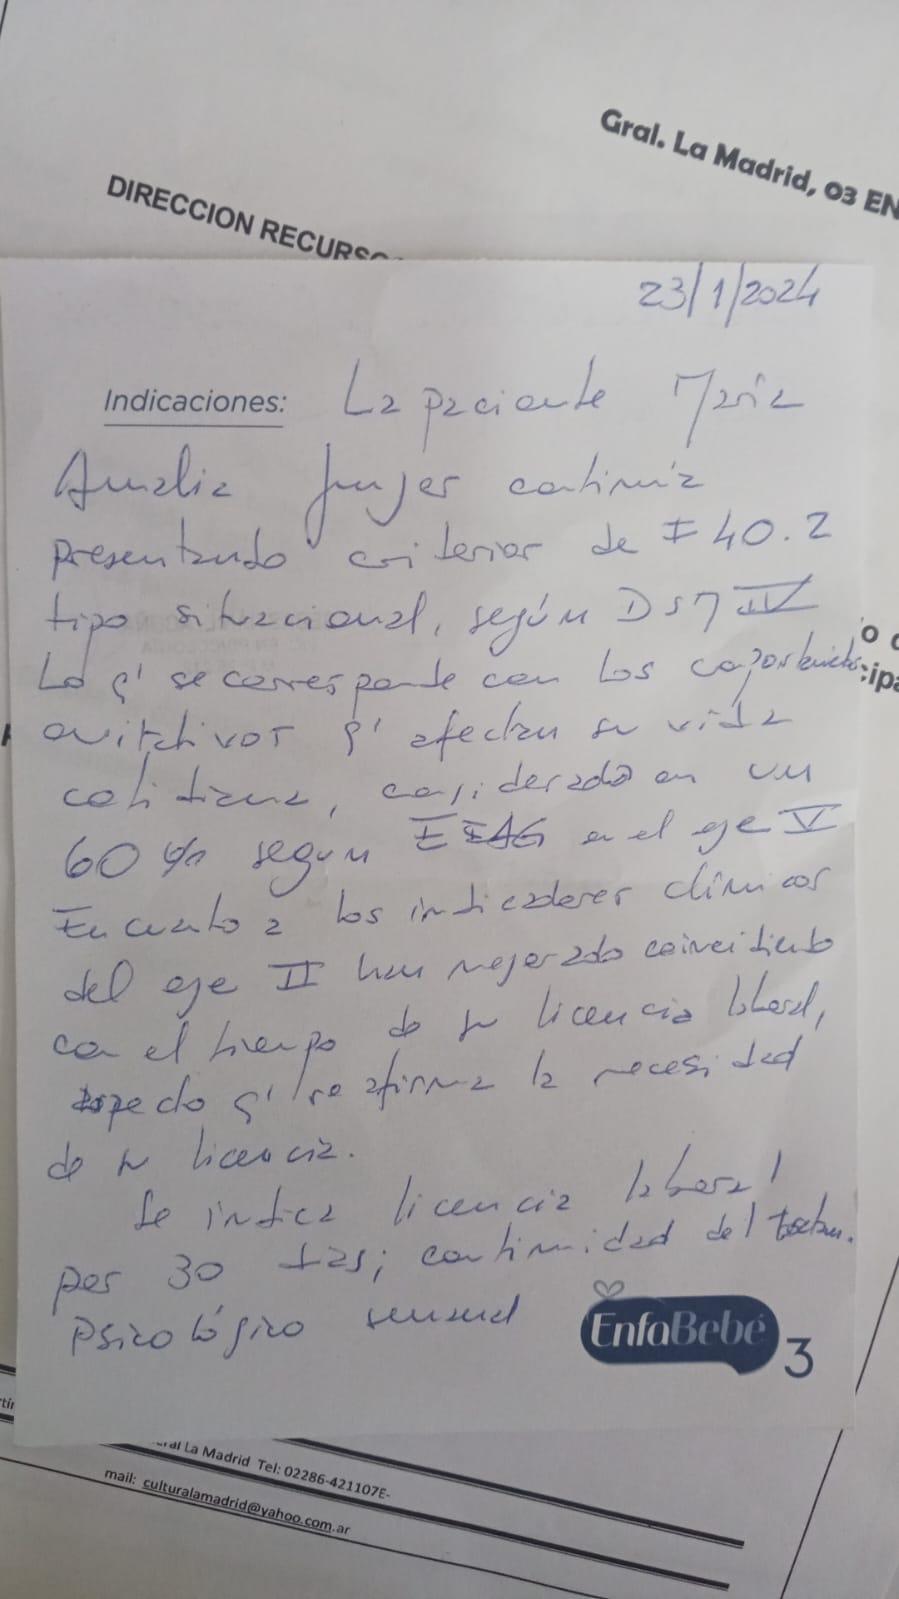 Gral. La Madrid, 03 EN
DIRECCION RECURSO
23/1/2024
Indicaciones: La paciente María
Amalia continúa
presentando criterior de F40.2
tipo situacional, según DSM IV
Lo q' se corresponde con los
evitativos q' afectan su vida
cotidiana, considerado en un
60 % según EEAG en el eje V
En cuanto a los indicadores clínicos
del eje II han mejorado coincidiendo
con el tiempo de su licencia laboral,
q' reafirma la necesidad
de su licencia.
Se indica licencia laboral
por 30 días; continuidad del tratam.
psicológico semanal
EnfaBebé 3
ral La Madrid Tel: 02286-421107E-
mail: culturalamadrid@yahoo.com.ar